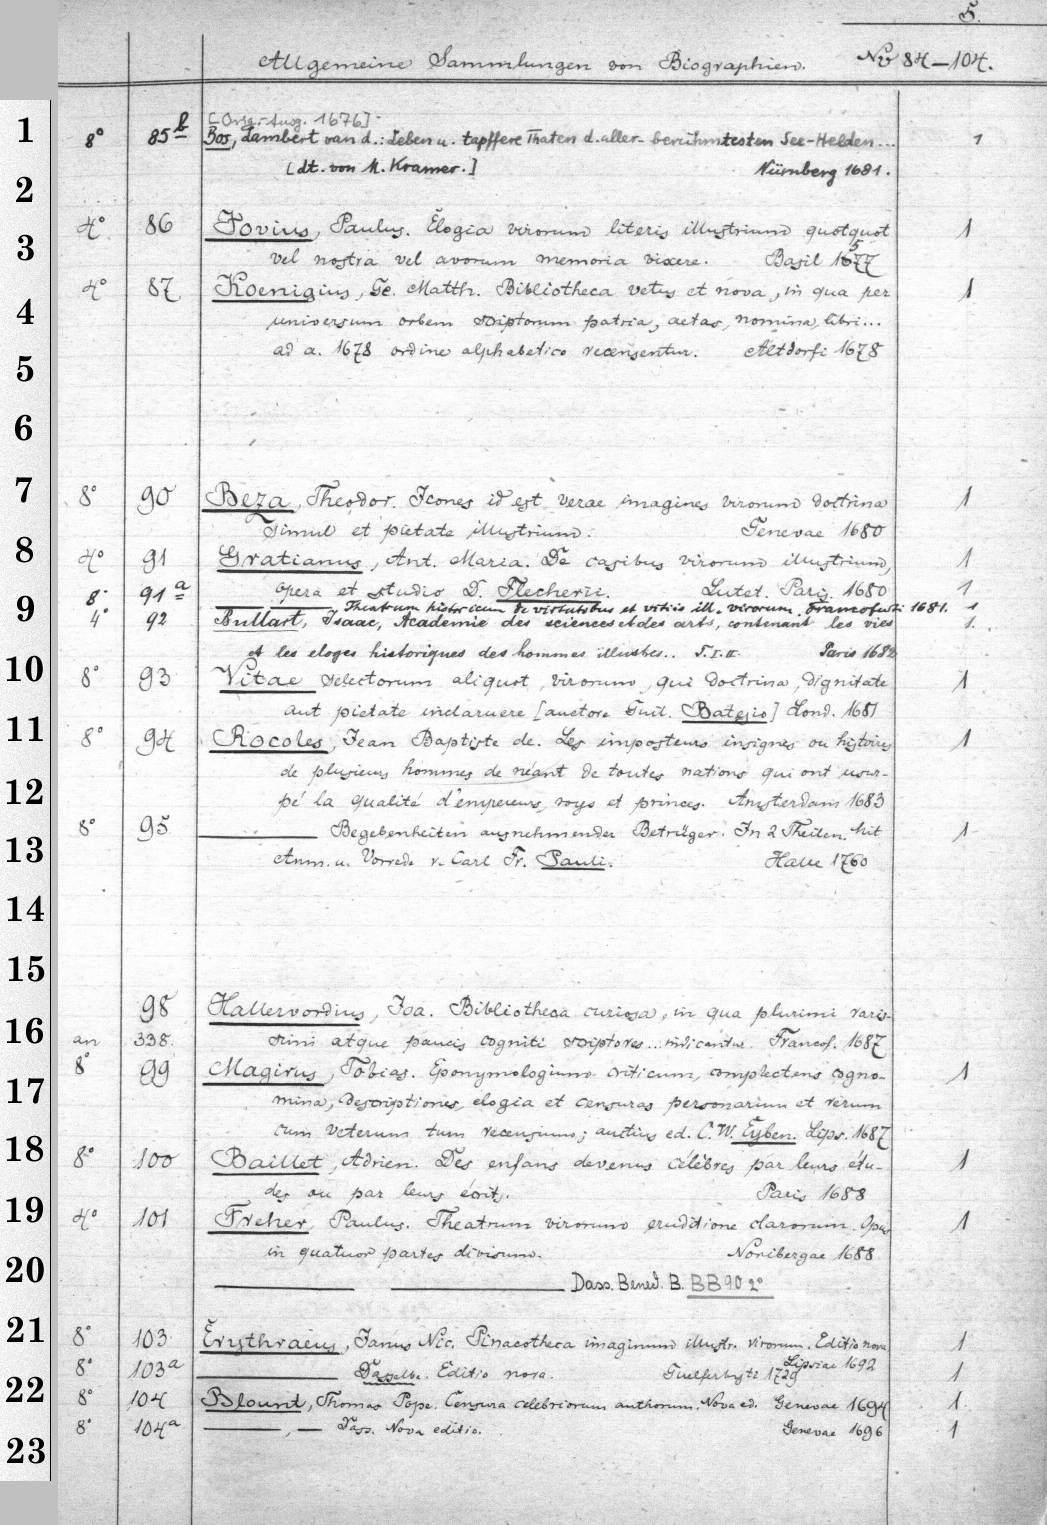 5.
Allgemeine Sammlungen von Biographien. No 84-104.
[Orig.-Ausg. 1676]
1 8° 85b Bos, Lambert van d.: Leben u. tapffere Thaten d. aller- berühmtesten See-Helden... 1
[dt. von M. Kramer.] Nürnberg 1681.
2
4° 86 Jovius, Paulus. Elogia virorum literis illustrium quotquot 1
3 vel nostra vel avorum memoria vixere. Basil 1577
4° 87 Koenigius, Ge. Matth. Bibliotheca vetus et nova, in qua per 1
4 universum orbem scriptorum patria, aetas, nomina, libri...
ad a. 1678 ordine alphabetico recensentur. Altdorfi 1678
5
6
7 8° 90 Beza, Theodor. Icones id est verae imagines virorum doctrina 1
simul et pietate illustrium. Genevae 1680
8 4° 91 Gratianus, Ant. Maria. De casibus virorum illustrium, 1
opera et studio D. Flecherii. Lutet. Paris. 1680 1
9 8° 91a Theatrum historicum de virtutibus et vitiis ill. virorum. Francofurti 1681. 1
4° 92 Bullart, Isaac, Academie des sciences et des arts, contenant les vies 1.
et les eloges historiques des hommes illustres.. T. I. II. Paris 1682
10 8° 93 Vitae selectorum aliquot virorum, qui doctrina, dignitate 1
aut pietate inclaruere [auctore Guil. Batesio] Lond. 1681
11 8° 94 Rocoles, Jean Baptiste de. Les imposteurs insignes ou histoires 1
de plusieurs hommes de néant de toutes nations qui ont usur-
12 pé la qualité d'empereurs, roys et princes. Amsterdam 1683
8° 95 Begebenheiten ausnehmender Betrüger. In 2 Theilen. Mit 1
13 Anm. u. Vorrede v. Carl Fr. Pauli. Halle 1760
14
15
98 Hallervordius, Joa. Bibliotheca curiosa, in qua plurimi raris-
16 an 338. simi atque paucis cogniti scriptores... indicantur. Francof. 1687
8° 99 Magirus, Tobias. Eponymologium criticum, complectens cogno- 1
17 mina, descriptiones, elogia et censuras personarum et rerum
cum veterum tum recensium; auctius ed. C. W. Eyben. Lips. 1687
18 8° 100 Baillet, Adrien. Des enfans devenus célèbres par leurs étu- 1
des ou par leurs écrits. Paris 1688
19 4° 101 Freher, Paulus. Theatrum virorum eruditione clarorum. Opus 1
in quatuor partes divisum. Noribergae 1688
20 Dass. Bened. B. BB 90 2°
21 8° 103 Erythraeus, Janus Nic. Pinacotheca imaginum illustr. virorum. Editio nova 1
Lipsiae 1692
8° 103a Dasselbe. Editio nova. Guelferbyti 1729 1
22 8° 104 Blount, Thomas Pope. Censura celebriorum authorum. Nova ed. Genevae 1694 1.
8° 104a Dass. Nova editio. Genevae 1696 1
23